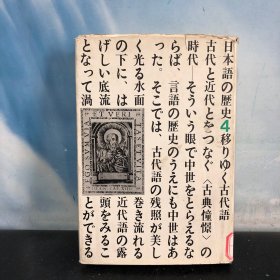 日本語の歴史4移りゆく古代語
古代と近代とをつなぐ〈古典憧憬〉の
時代―そういう眼で中世をとらえるな
らば、言語の歴史のうえにも中世はあ
った。そこでは、古代語の残照が美し
く光る水面
の下に、は
げしい底流
となって渦
巻き流れる
近代語の露
頭をみるこ
とができる
ET VERI